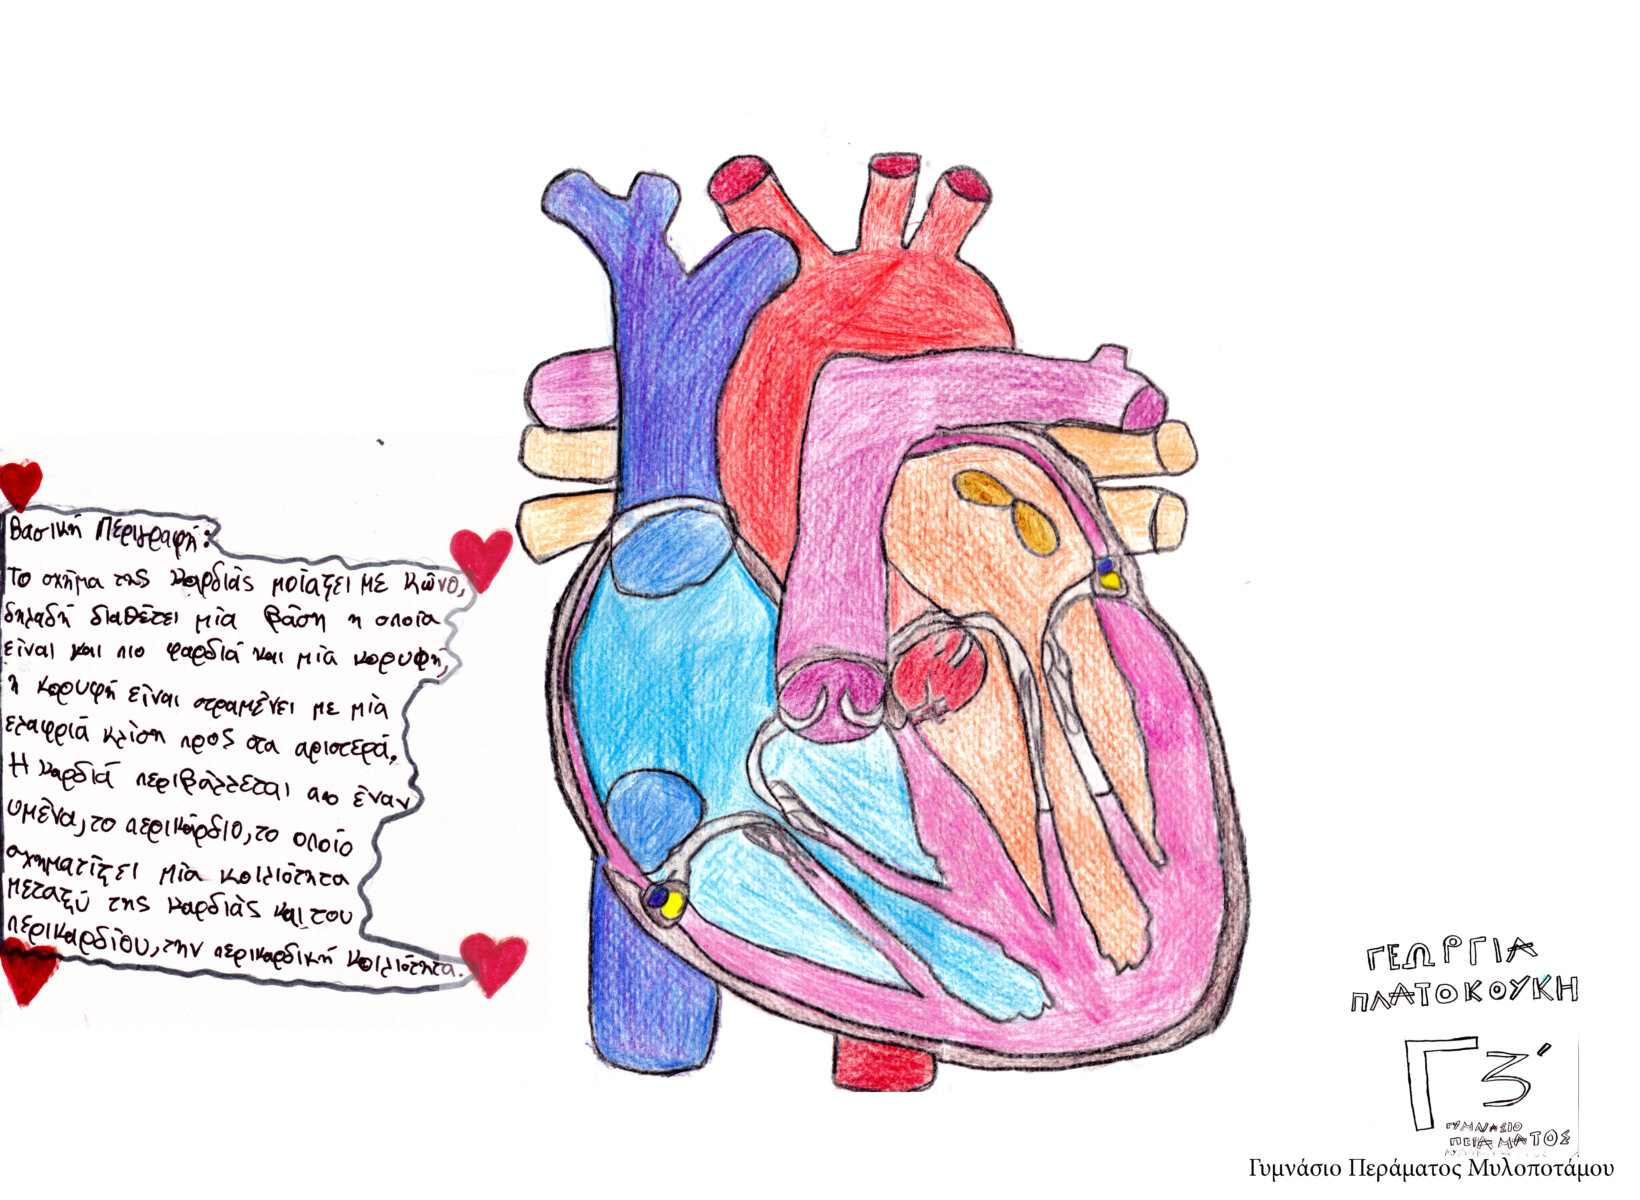 Βασική Περιγραφή:
Το σχήμα της καρδιάς μοιάζει με κώνο,
δηλαδή διαθέτει μία βάση η οποία
είναι και πιο φαρδιά και μία κορυφή,
η κορυφή είναι στραμένει με μία
ελαφριά κλίση προς τα αριστερά.
Η καρδιά περιβάλλεται απο έναν
υμένα, το περικάρδιο, το οποίο
σχηματίζει μία κοιλιότητα
μεταξύ της καρδιάς και του
περικαρδίου, την περικαρδική κοιλιότητα.
ΓΕΩΡΓΙΑ
ΠΛΑΤΟΚΟΥΚΗ
Γ3΄
ΓΥΜΝΑΣΙΟ
ΠΕΡΑΜΑΤΟΣ
Γυμνάσιο Περάματος Μυλοποτάμου